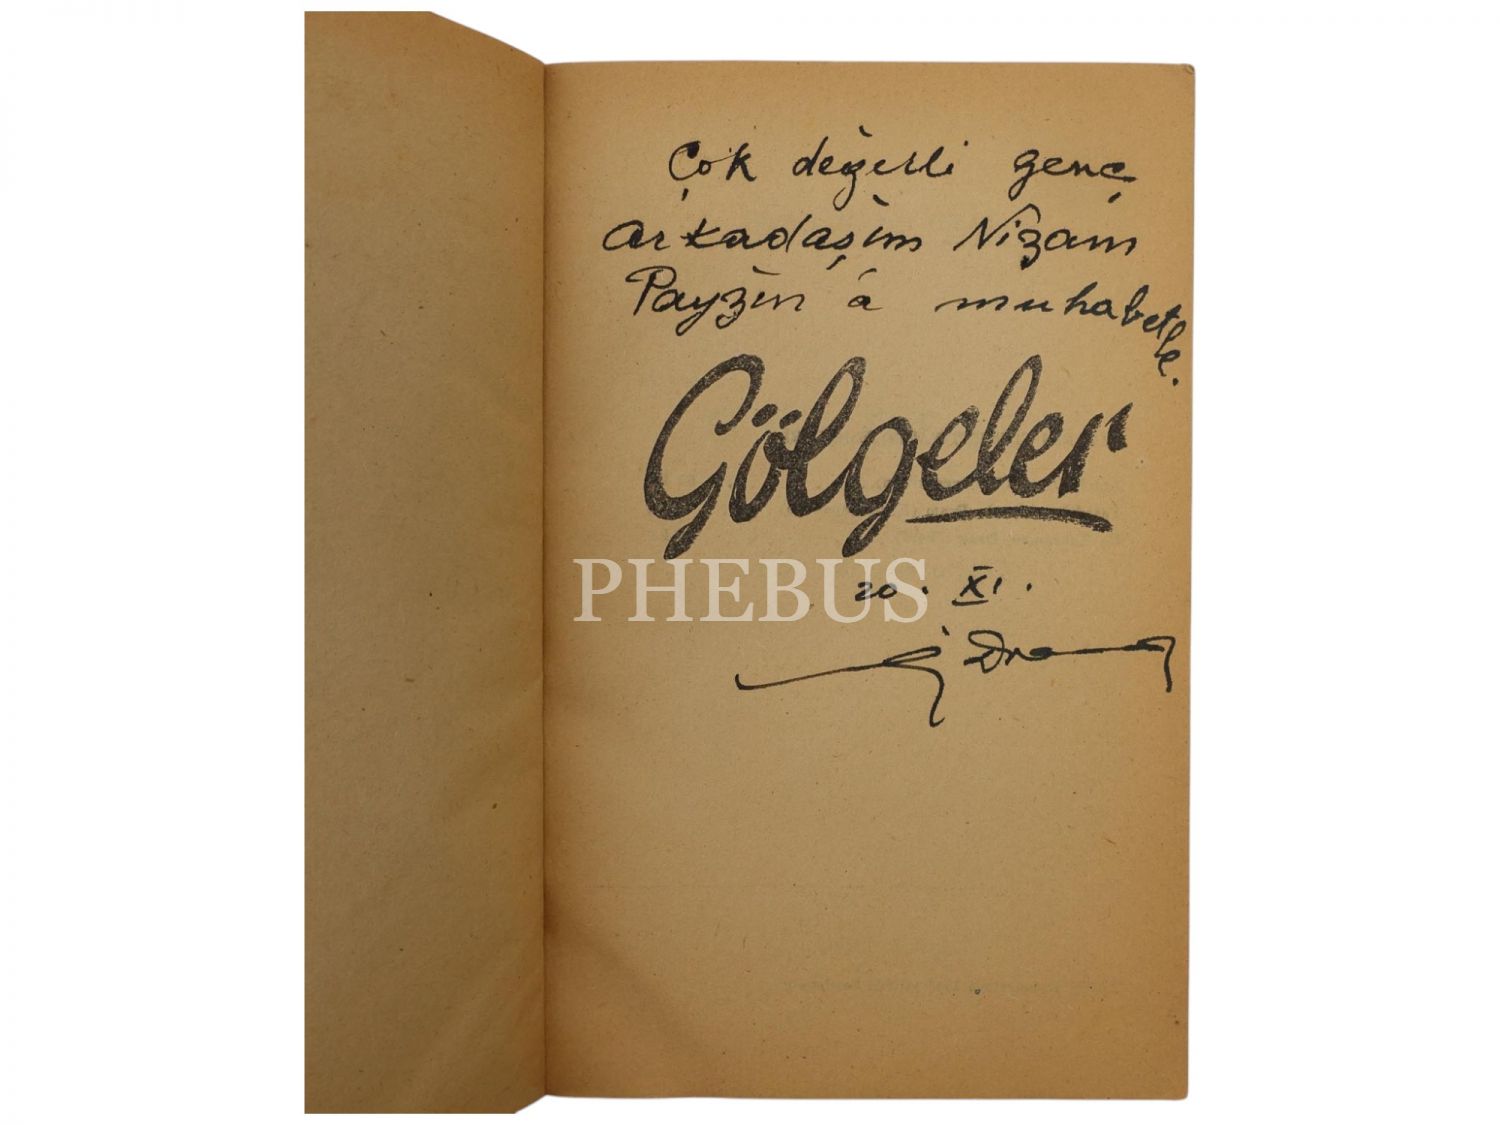 Çok değerli genç
arkadaşım Nizam
Payzın'a muhabetle.
Gölgeler
PHEBUS
20. XI.